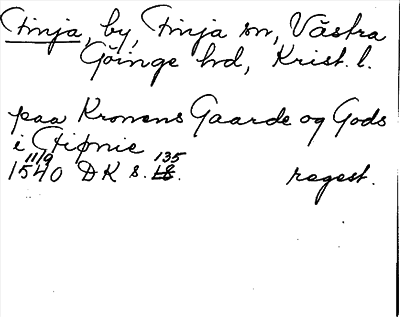 Finja, by, Finja sn, Västra
Göinge hd, Krist. l.
paa Kronens Gaarde og Gods
i Ffipnie
11/9 135
1540 DK s. 18. regest.